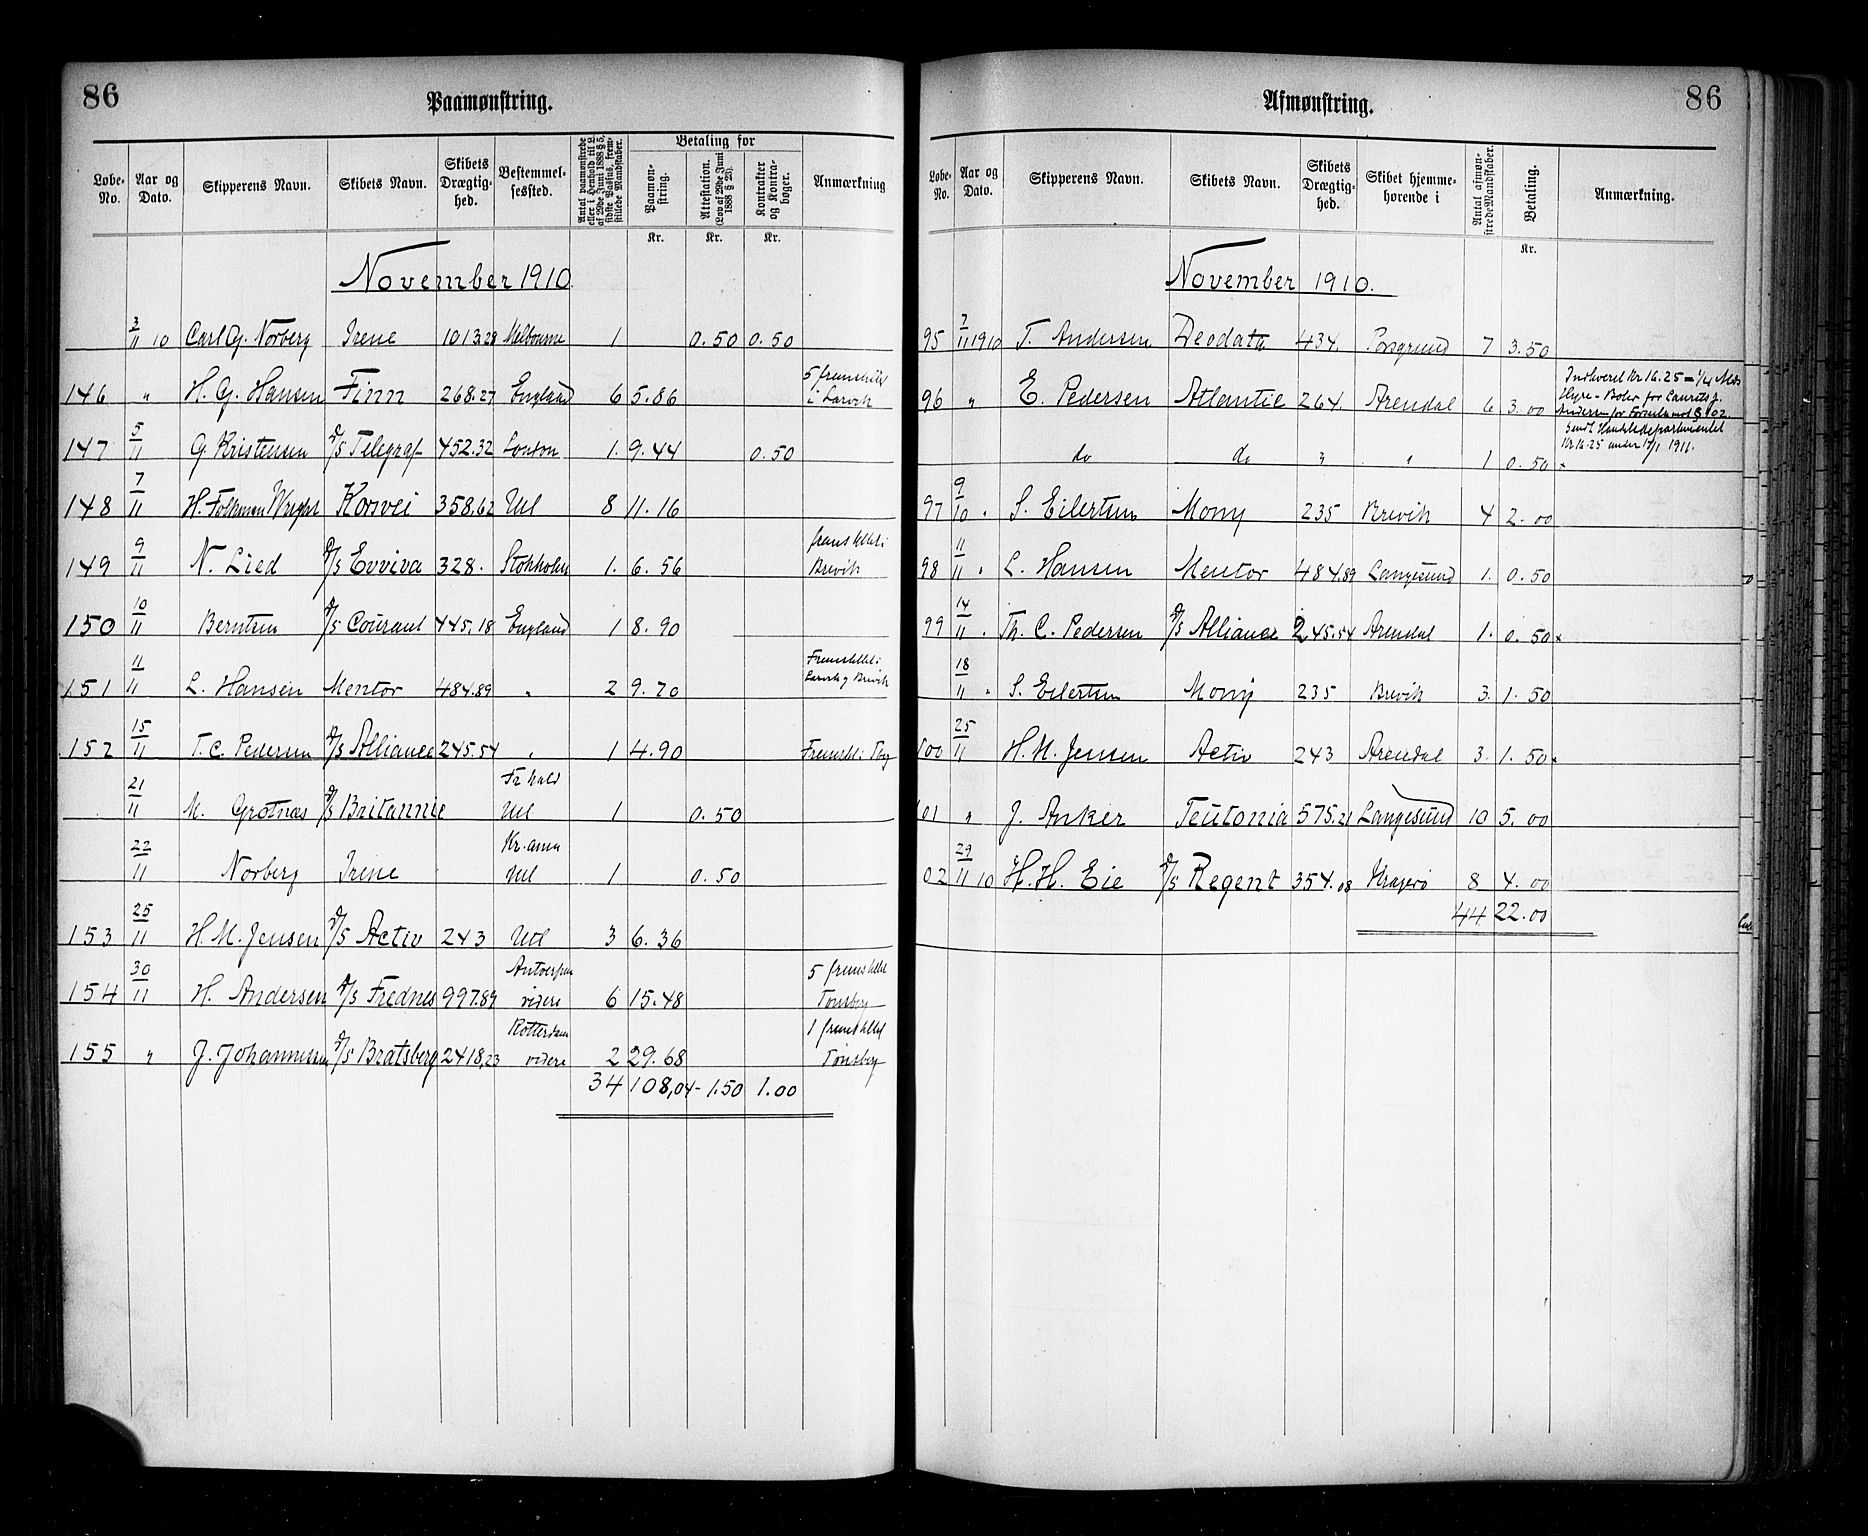 86
Paamønstring.
Løbe-No. Aar og Dato. Skipperens Navn. Skibets Navn. Skibets Drægtig-hed. Bestemmel-sessted. Antal paamønstrede eller i Henhold til L. af 29de Juni 1888 § 5, sidste Passus, frem-stillede Mandskaber. Betaling for Paamøn-string. Attestation. (Lov af 29de Juni 1888 § 23). Kontrakter og Kontra-bøger. Anmærkning
Kr. Kr. Kr.
November 1910.
3/11 10 Carl G. Norberg Irene 1013.28 Melbourne 1 0.50 0.50
146 " H. G. Hansen Finn 268.27 England 6 5.86 5 fremstillet i Larvik
147 5/11 G. Kristensen D/S Telegraf 452.32 London 1. 9.44 0.50
148 7/11 H. Korsvei 358,62 Utl 8 11.16
149 9/11 N. Lied D/S Evviva 328. Stokholm 1. 6.56 fremstillet i Brevik
150 10/11 Berntsen D/S Courant 445,18 England 1 8.90
151 11/11 L. Hansen Mentor 484.89 " 2 9.70 Fremstillet i Larvik og Brevik
152 15/11 T. C. Pedersen D/S Alliance 245.54 " 1 4.90 Fremst. i Tbg
21/11 M. Grotnæs D/S Britannic Fr hald Utl 1 0.50
22/11 Norberg Irene Kr.ania Utl 1 0.50
153 25/11 H. M. Jensen D/S Activ 243 Utl 3 6.36
154 30/11 H. Andersen D/S Frednes 997.89 Antwerpen videre 6 15.48 5 fremstillet Tønsberg
155 " J. Johannessen D/S Bratsberg 2418,23 Rotterdam videre 2 29.68 1 fremstillet Tønsberg
34 108,04 - 1.50 1.00
86
Afmønstring.
Løbe-No. Aar og Dato. Skipperens Navn. Skibets Navn. Skibets Drægtig-hed. Skibet hjemme-hørende i Antal afmøn-strede Mandskaber. Betaling. Anmærkning.
Kr.
November 1910.
95 7/11 1910 T. Andersen Deodata 434. Porsgrund 7 3.50
96 " E. Pedersen Atlantic 264. Arendal 6 3.00 Indleveret Kr 16.25 Hyre Laurits J. Andersen § 102
do do " " 1 0.50 x sendt Handelsdepartementet Kr. 16.25 under 17/1 1911.
97 9/10 " S. Eilertsen Mony 235 Brevik 4 2.00
98 11/11 " L. Hansen Mentor 484.89 Langesund 1. 0.50
99 14/11 " Th. C. Pedersen D/S Alliance 245.54 Arendal 1. 0.50 x
18/11 " S. Eilertsen Mony 235 Brevik 3. 1.50
100 25/11 H. M. Jensen Activ 243 Arendal 3. 1.50 x
101 " J. Anker Teutonia 575.21 Langesund 10 5.00
02 29/11 10 H. H. Eie D/S Regent 354.08 Kragerø 8 4.00
44 22.00